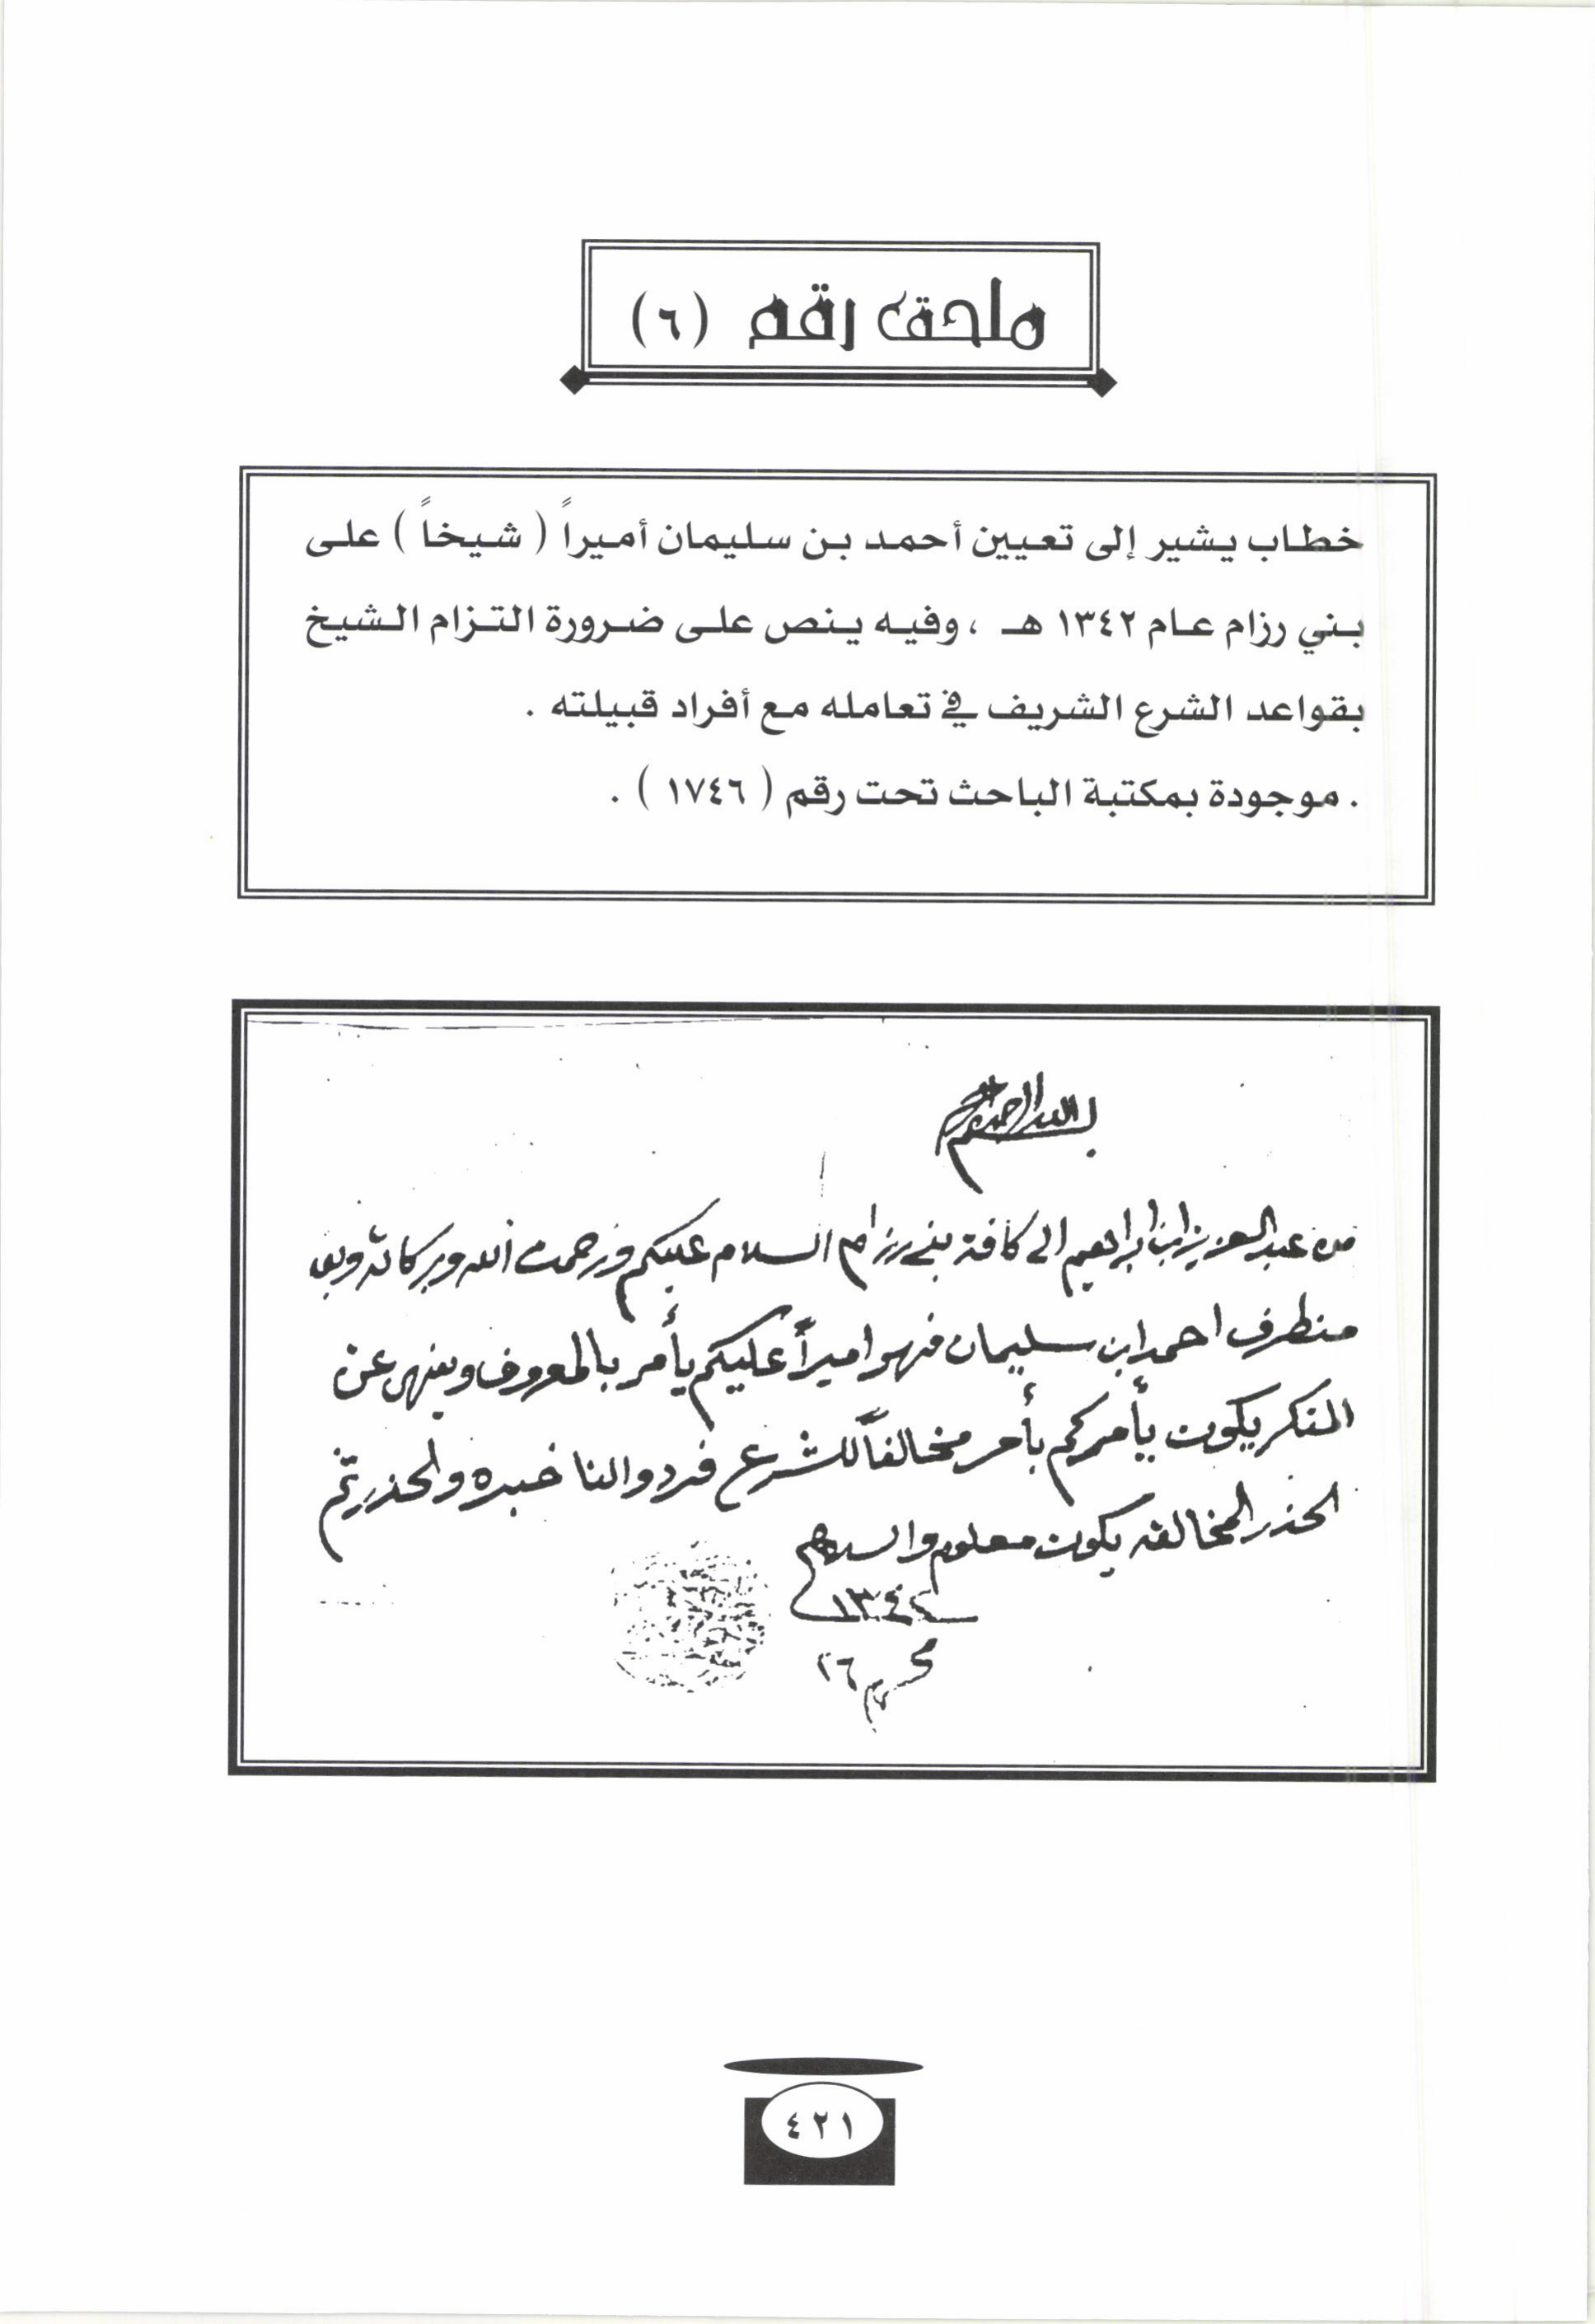 ملحق رقم (٦)
خطاب يشير إلى تعيين أحمد بن سليمان أميراً ( شيخاً ) على
بني رزام عام ١٣٤٢ هـ ، وفيه ينص على ضرورة التزام الشيخ
بقواعد الشرع الشريف في تعامله مع أفراد قبيلته .
. موجودة بمكتبة الباحث تحت رقم ( ١٧٤٦ ) .
بسم الله الرحمن الرحيم
من عبد العزيز ابن ابراهيم الى كافة بني رزام السلام عليكم ورحمت الله وبركاته وبعد
منطرف احمد ابن سليمان فهو اميراً عليكم يأمر بالمعروف وينهى عن
المنكر يكون يأمركم بأمر مخالفاً للشرع فردوا لنا خبره والحذر ثم
الحذر المخالفه يكون معلوم والسلام
١٣٤٢
محرم ٢٦
٤٢١